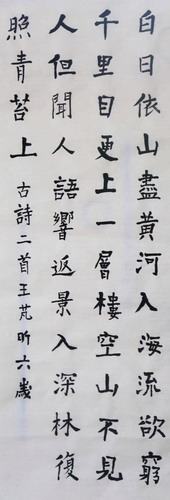 白日依山盡黃河入海流欲窮
千里目更上一層樓空山不見
人但聞人語響返景入深林復
照青苔上
古詩二首王芃昕六歲